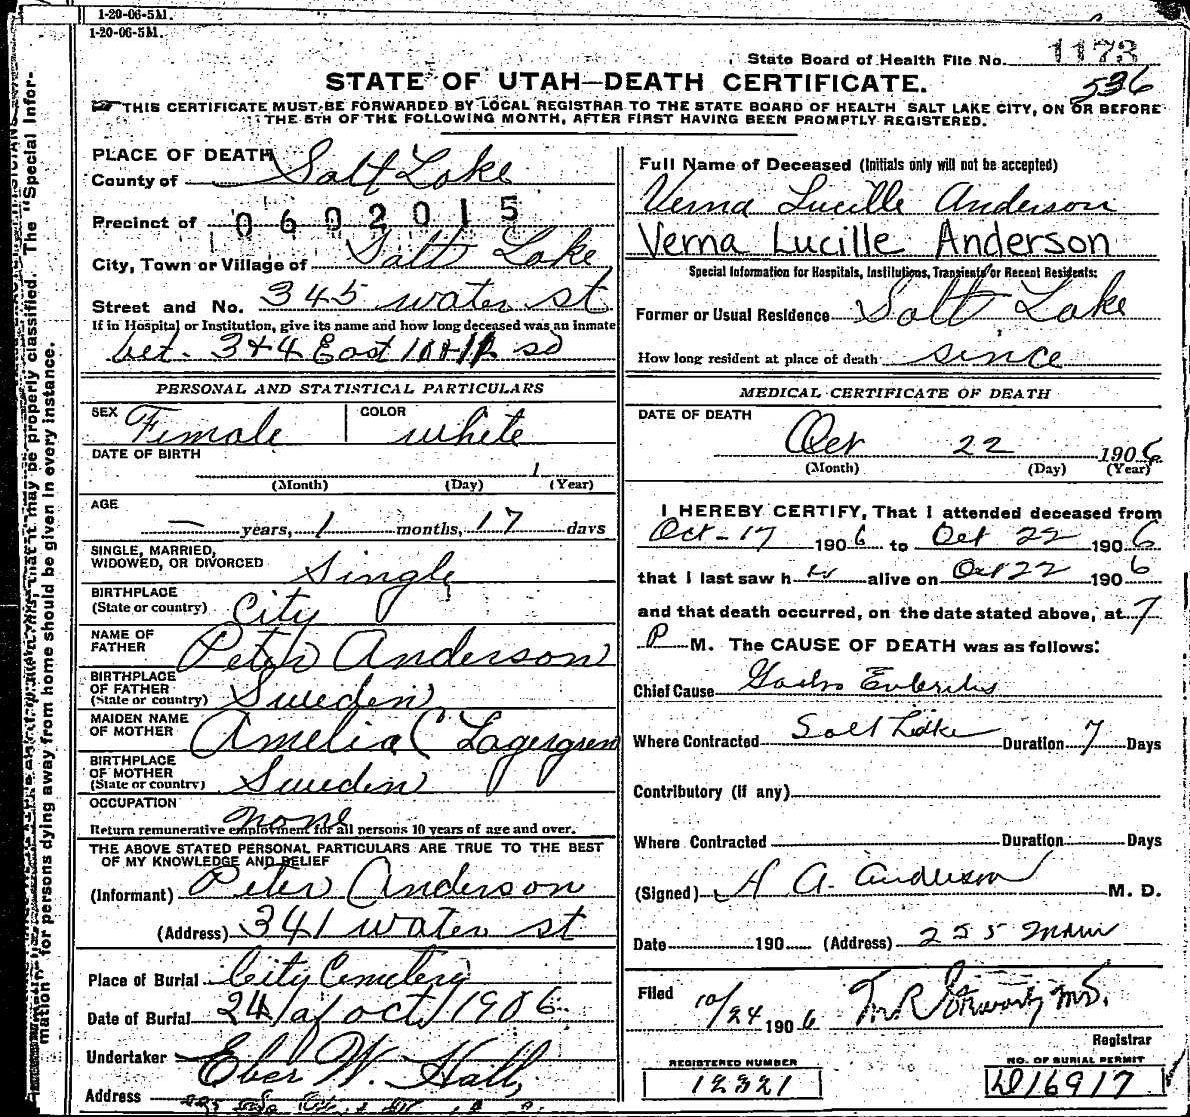 1-20-06-5M.
1-20-06-5M.
State Board of Health File No. 1173
536
STATE OF UTAH—DEATH CERTIFICATE.
THIS CERTIFICATE MUST BE FORWARDED BY LOCAL REGISTRAR TO THE STATE BOARD OF HEALTH SALT LAKE CITY, ON OR BEFORE
THE 5TH OF THE FOLLOWING MONTH, AFTER FIRST HAVING BEEN PROMPTLY REGISTERED.
mation" for persons dying away from home should be given in every instance.
may be properly classified. The "Special Infor-
PLACE OF DEATH
County of Salt Lake
Precinct of 0602015
City, Town or Village of Salt Lake
Street and No. 345 water st
If in Hospital or Institution, give its name and how long deceased was an inmate
bet. 3 & 4 East so
PERSONAL AND STATISTICAL PARTICULARS
SEX Female COLOR white
DATE OF BIRTH 1
(Month) (Day) (Year)
AGE — years, 1 months, 17 days
SINGLE, MARRIED,
WIDOWED, OR DIVORCED Single
BIRTHPLACE
(State or country) City
NAME OF
FATHER Peter Anderson
BIRTHPLACE
OF FATHER
(State or country) Sweden
MAIDEN NAME
OF MOTHER Amelia C Lagergren
BIRTHPLACE
OF MOTHER
(State or country) Sweden
OCCUPATION none
Return remunerative employment for all persons 10 years of age and over.
THE ABOVE STATED PERSONAL PARTICULARS ARE TRUE TO THE BEST
OF MY KNOWLEDGE AND BELIEF
(Informant) Peter Anderson
(Address) 341 water st
Place of Burial City Cemetery
Date of Burial 24 of oct 1906
Undertaker Eber W. Hall
Address
Full Name of Deceased (Initials only will not be accepted)
Verna Lucille Anderson
Verna Lucille Anderson
Special Information for Hospitals, Institutions, Transients or Recent Residents:
Former or Usual Residence Salt Lake
How long resident at place of death since
MEDICAL CERTIFICATE OF DEATH
DATE OF DEATH
Oct 22 1906
(Month) (Day) (Year)
I HEREBY CERTIFY, That I attended deceased from
Oct-17 1906 to Oct 22 1906
that I last saw h er alive on Oct 22 1906
and that death occurred, on the date stated above, at 7
P M. The CAUSE OF DEATH was as follows:
Chief Cause Gastro Enteritis
Where Contracted Salt Lake Duration 7 Days
Contributory (if any)
Where Contracted Duration Days
(Signed) H A. Anderson M. D.
Date 190 (Address) 255 Main
Filed 10/24 1906 M.D.
Registrar
REGISTERED NUMBER
12321
NO. OF BURIAL PERMIT
D16917